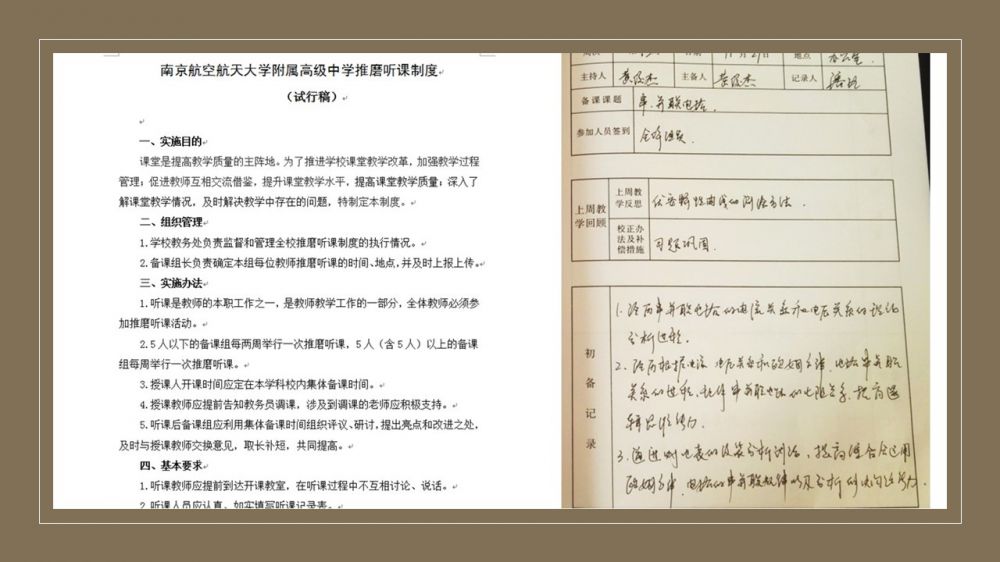 南京航空航天大学附属高级中学推磨听课制度
（试行稿）
一、实施目的
课堂是提高教学质量的主阵地。为了推进学校课堂教学改革，加强教学过程
管理；促进教师互相交流借鉴，提升课堂教学水平，提高课堂教学质量；深入了
解课堂教学情况，及时解决教学中存在的问题，特制定本制度。
二、组织管理
1.学校教务处负责监督和管理全校推磨听课制度的执行情况。
2.备课组长负责确定本组每位教师推磨听课的时间、地点，并及时上报上传。
三、实施办法
1.听课是教师的本职工作之一，是教师教学工作的一部分，全体教师必须参
加推磨听课活动。
2.5人以下的备课组每两周举行一次推磨听课，5人（含5人）以上的备课
组每周举行一次推磨听课。
3.授课人开课时间应定在本学科校内集体备课时间。
4.授课教师应提前告知教务员调课，涉及到调课的老师应积极支持。
5.听课后备课组应利用集体备课时间组织评议、研讨，提出亮点和改进之处，
及时与授课教师交换意见，取长补短，共同提高。
四、基本要求
1.听课教师应提前到达开课教室，在听课过程中不互相讨论、说话。
2.听课人员应认真、如实填写听课记录表。
地点 办公室
主持人 主备人 记录人
备课课题 串、并联电路.
参加人员签到 全体组员.
上周教学回顾
上周教学反思 伏安特性曲线的测法.
校正办法及补偿措施 习题巩固.
初备记录
1.经历串并联电路的电流关系和电压关系的理论
分析过程.
2.经历根据电流、电压关系和欧姆定律、电路串并联
关系的过程, 串并联电路的电阻关系.提高逻
辑思维能力.
3.通过对电表的改装分析讨论、提高综合运用
欧姆定律、电路的串并联规律以及分析解决问题能力.